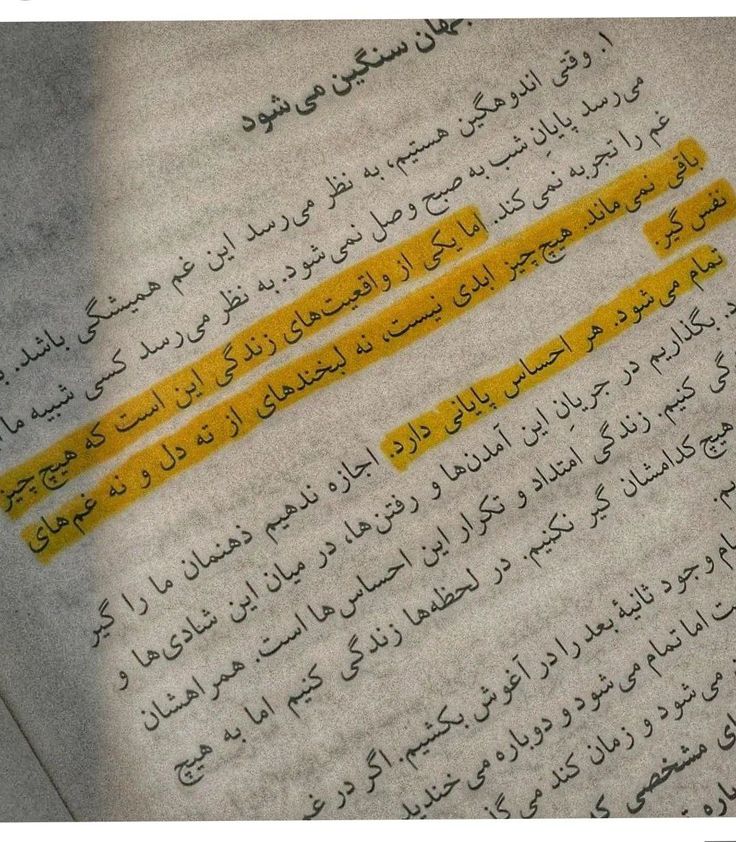 جهان سنگین می‌شود
۱. وقتی اندوهگین هستیم، به نظر می‌رسد این غم همیشگی باشد.
می‌رسد پایانِ شب به صبح وصل نمی‌شود. به نظر می‌رسد کسی شبیه ما
غم را تجربه نمی‌کند. اما یکی از واقعیت‌های زندگی این است که هیچ چیز
باقی نمی‌ماند. هیچ‌چیز ابدی نیست، نه لبخندهای از ته دل و نه غم‌های
نفس‌گیر.
تمام می‌شود. هر احساس پایانی دارد. اجازه ندهیم ذهنمان ما را گیر
بگذاریم در جریانِ این آمدن‌ها و رفتن‌ها، در میان این شادی‌ها و
کنیم. زندگی امتداد و تکرار این احساس‌ها است. همراهشان
هیچ کدامشان گیر نکنیم. در لحظه‌ها زندگی کنیم اما به هیچ
وجود ثانیهٔ بعد را در آغوش بکشیم. اگر در
اما تمام می‌شود و دوباره می‌خندید
می‌شود و زمان کند
مشخصی